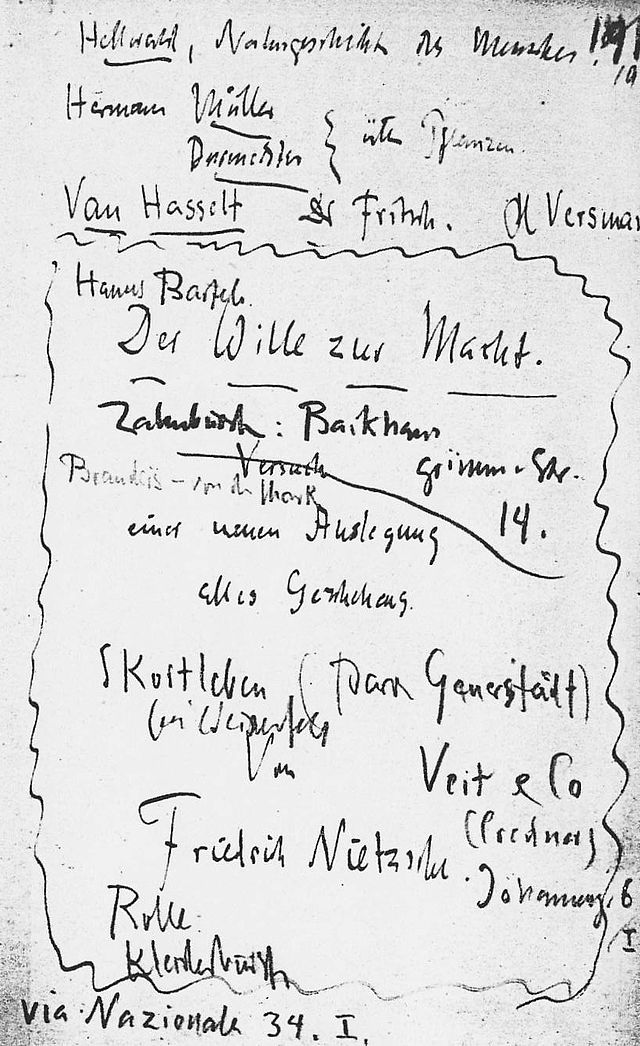 Hellwald, Naturgeschichte des Menschen.
Hermann Müller
über Pflanzen.
Van Hasselt Dr Fritsch. H Versmann
Der Wille zur Macht.
Zahnbürste: Backhaus
Versuch Grimm. Str.
Brandeis – von der Mark 14.
einer neuen Auslegung
alles Geschehens.
Skortleben (Pfarr Generstädt)
bei Weissenfels
Von
Veit & Co
(Credner)
Friedrich Nietzsche.
Johannesg. 6
I
Rolle
Kleiderbürste
via Nazionale 34. I.